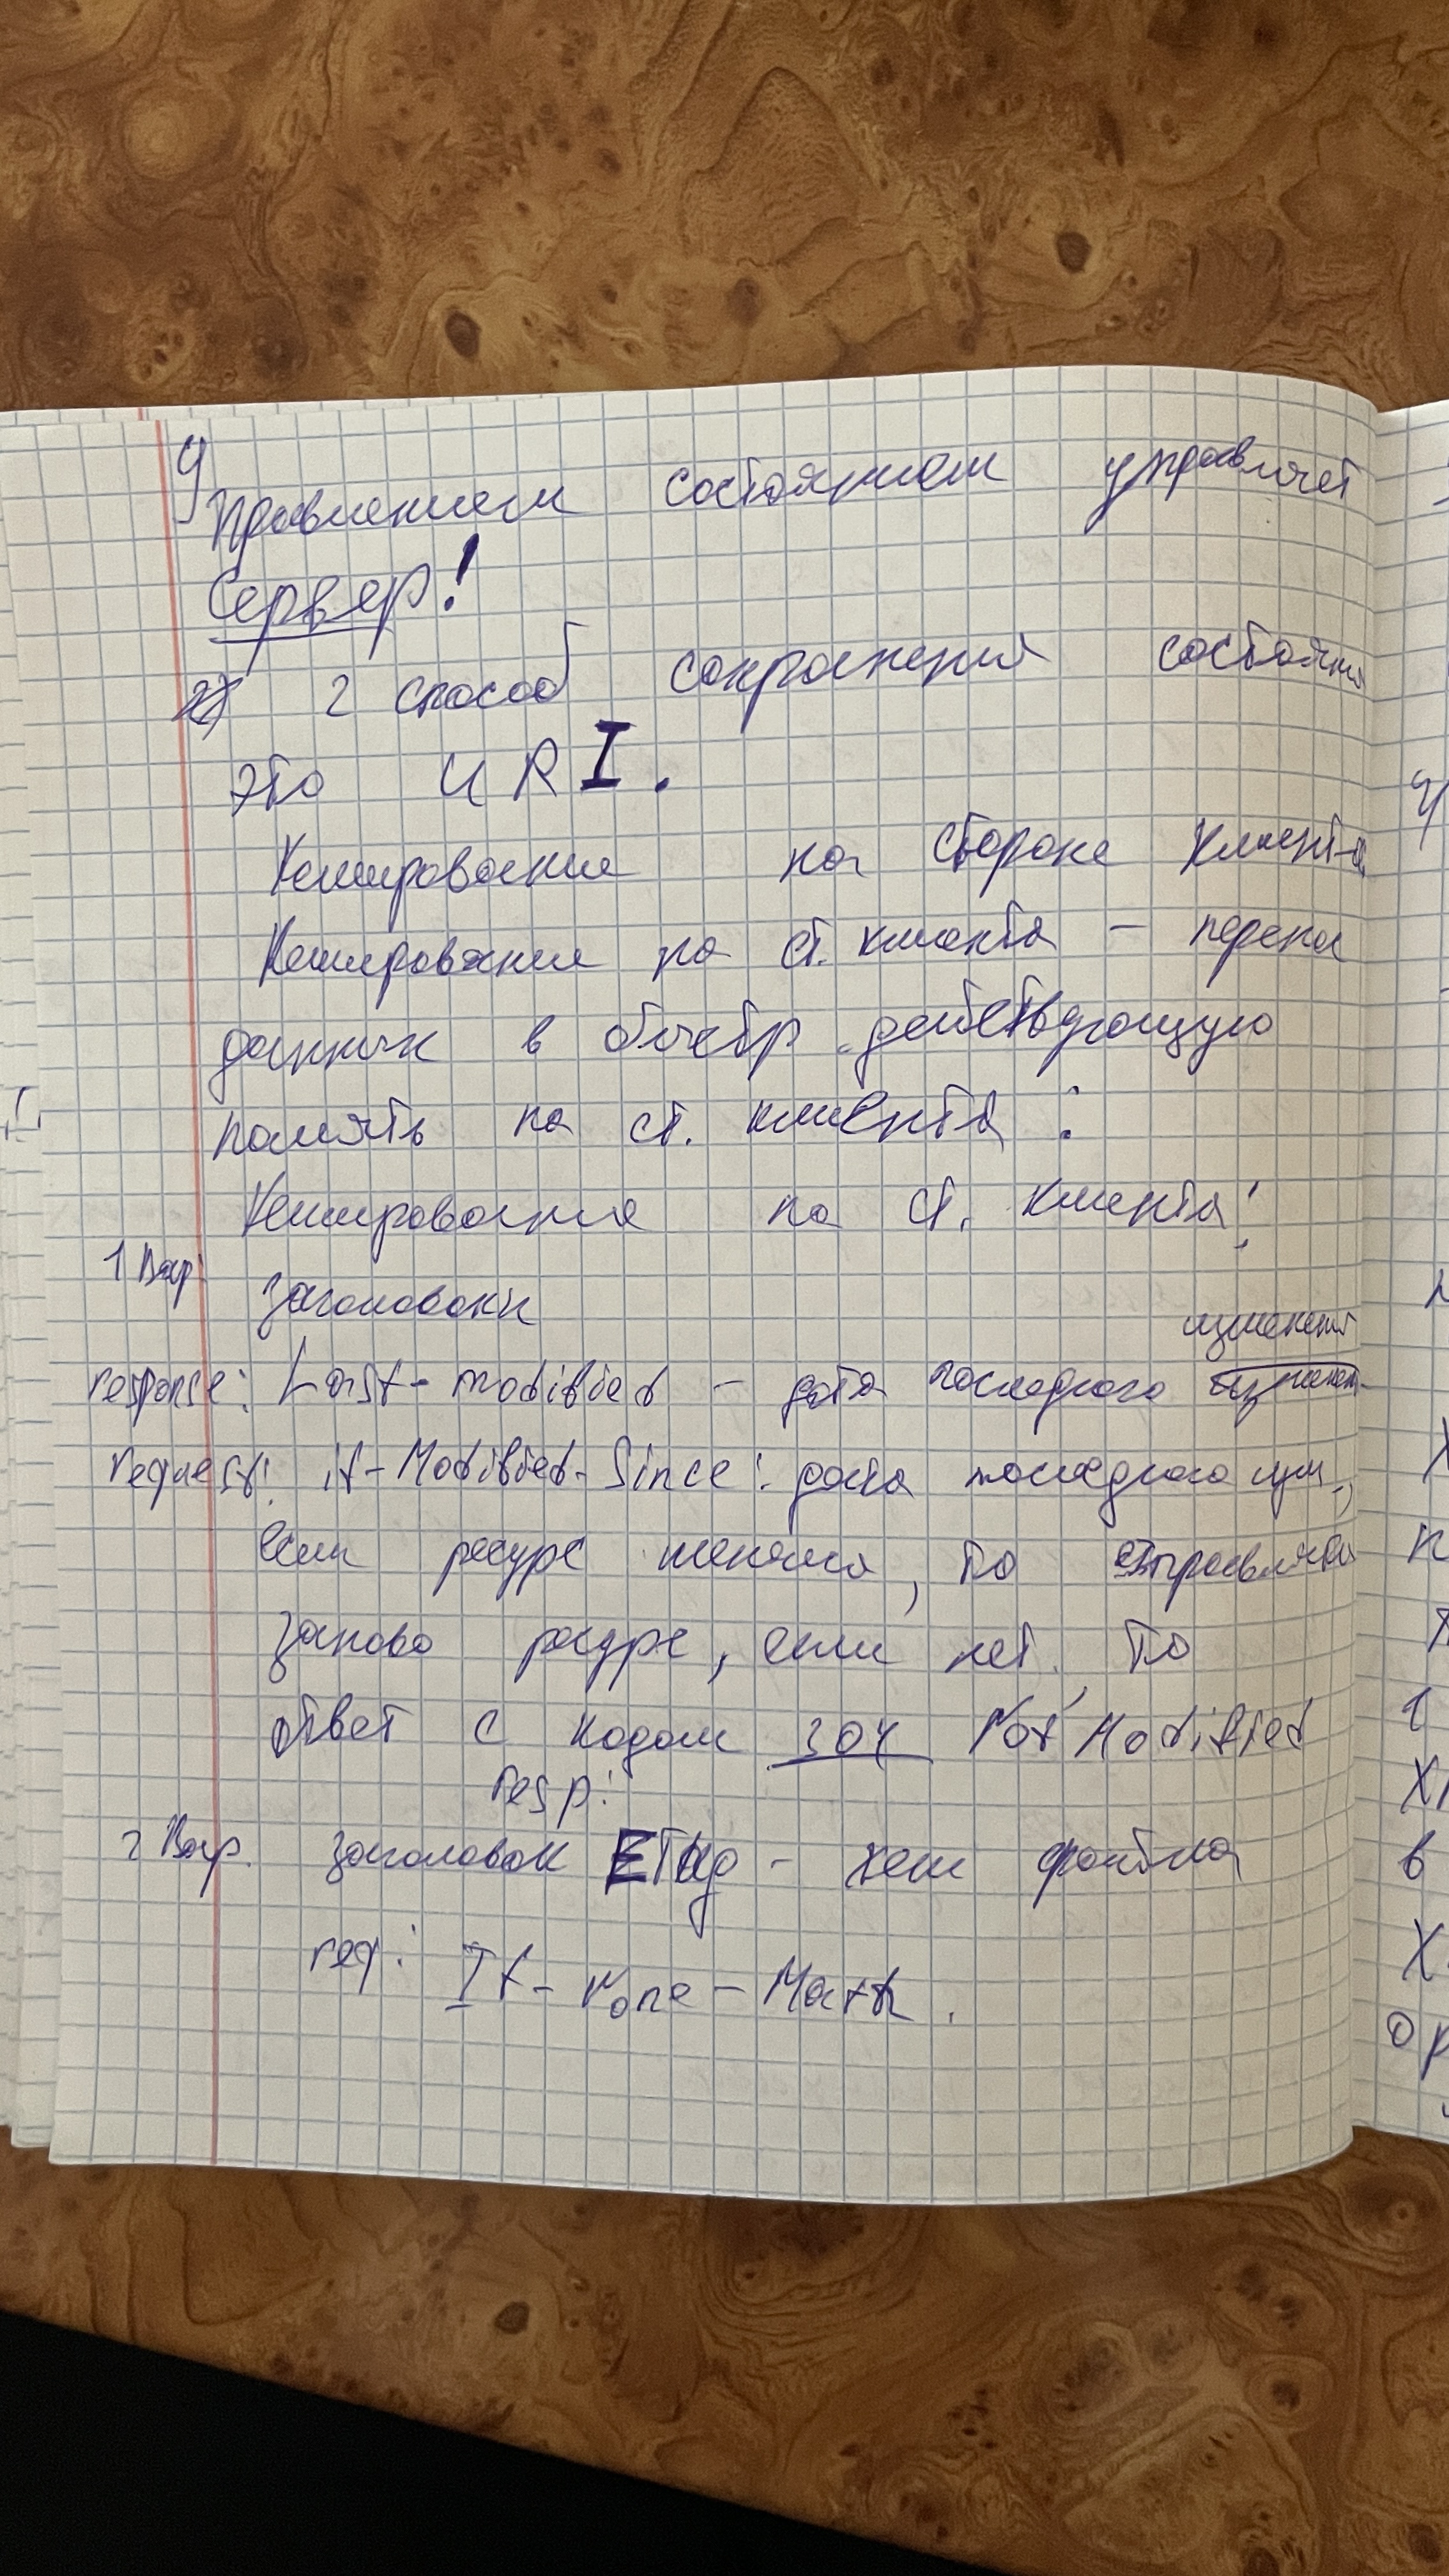 Управлением состоянием управляет
Сервер!
2) 2 способ сохранения состояния
это URI.
Кеширование на стороне клиента
Кеширование на ст. клиента –
данных в действующую
память на ст. клиента :
Кеширование на ст. клиента:
1 Вар: заголовоки
изменения
response: Last-modified – дата последного
request: if-Modified-Since: дата последного изм.,
если ресурс менялся, то отправляется
заново ресурс, если нет, то
ответ с кодом 304 Not Modified
resp:
2 Вар. заголовок ETag - хеш файла
req: If-None-Match.